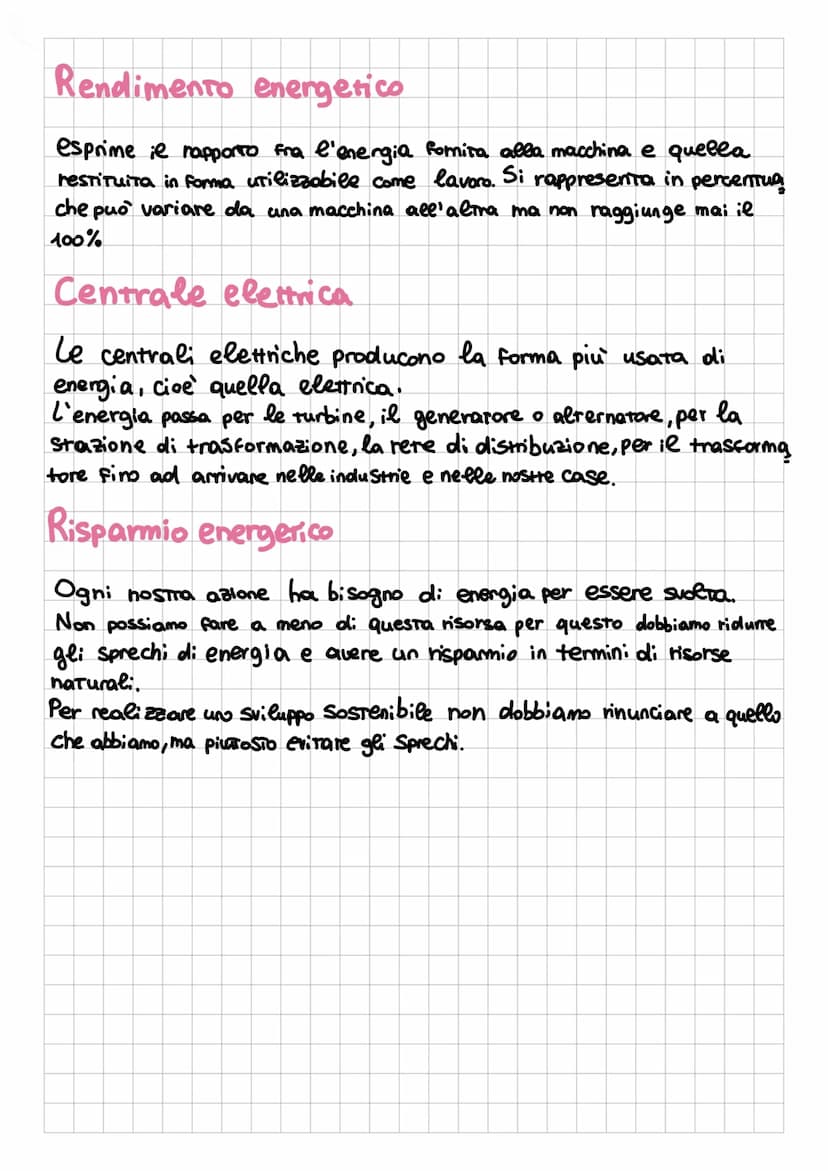 Rendimento energetico
esprime il rapporto fra l'energia fornita alla macchina e quella
restituita in forma utilizzabile come lavoro. Si rappresenta in percentua
che può variare da una macchina all'altra ma non raggiunge mai il
100%
Centrale elettrica
Le centrali elettriche producono la forma più usata di
energia, cioè quella elettrica.
L'energia passa per le turbine, il generatore o alternatore, per la
stazione di trasformazione, la rete di distribuzione, per il trasforma
tore fino ad arrivare nelle industrie e nelle nostre case.
Risparmio energetico
Ogni nostra azione ha bisogno di energia per essere svolta.
Non possiamo fare a meno di questa risorsa per questo dobbiamo ridurre
gli sprechi di energia e avere un risparmio in termini di risorse
naturali.
Per realizzare uno sviluppo sostenibile non dobbiamo rinunciare a quello
che abbiamo, ma piuttosto evitare gli sprechi.